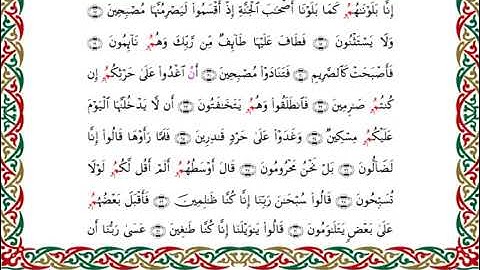 إِنَّا بَلَوْنَٰهُمُۥ كَمَا بَلَوْنَا أَصْحَٰبَ ٱلْجَنَّةِ إِذْ أَقْسَمُوا۟ لَيَصْرِمُنَّهَا مُصْبِحِينَ ۝
وَلَا يَسْتَثْنُونَ ۝ فَطَافَ عَلَيْهَا طَآئِفٌ مِّن رَّبِّكَ وَهُمُۥ نَآئِمُونَ ۝
فَأَصْبَحَتْ كَٱلصَّرِيمِ ۝ فَتَنَادَوْا۟ مُصْبِحِينَ ۝ أَنُ ٱغْدُوا۟ عَلَىٰ حَرْثِكُمُۥ إِن
كُنتُمُۥ صَٰرِمِينَ ۝ فَٱنطَلَقُوا۟ وَهُمُۥ يَتَخَٰفَتُونَ ۝ أَن لَّا يَدْخُلَنَّهَا ٱلْيَوْمَ
عَلَيْكُمُۥ مِسْكِينٌ ۝ وَغَدَوْا۟ عَلَىٰ حَرْدٍ قَٰدِرِينَ ۝ فَلَمَّا رَأَوْهَا قَالُوا۟ إِنَّا
لَضَآلُّونَ ۝ بَلْ نَحْنُ مَحْرُومُونَ ۝ قَالَ أَوْسَطُهُمُۥ أَلَمْ أَقُل لَّكُمُۥ لَوْلَا
تُسَبِّحُونَ ۝ قَالُوا۟ سُبْحَٰنَ رَبِّنَا إِنَّا كُنَّا ظَٰلِمِينَ ۝ فَأَقْبَلَ بَعْضُهُمُۥ
عَلَىٰ بَعْضٍ يَتَلَٰوَمُونَ ۝ قَالُوا۟ يَٰوَيْلَنَا إِنَّا كُنَّا طَٰغِينَ ۝ عَسَىٰ رَبُّنَا أَن